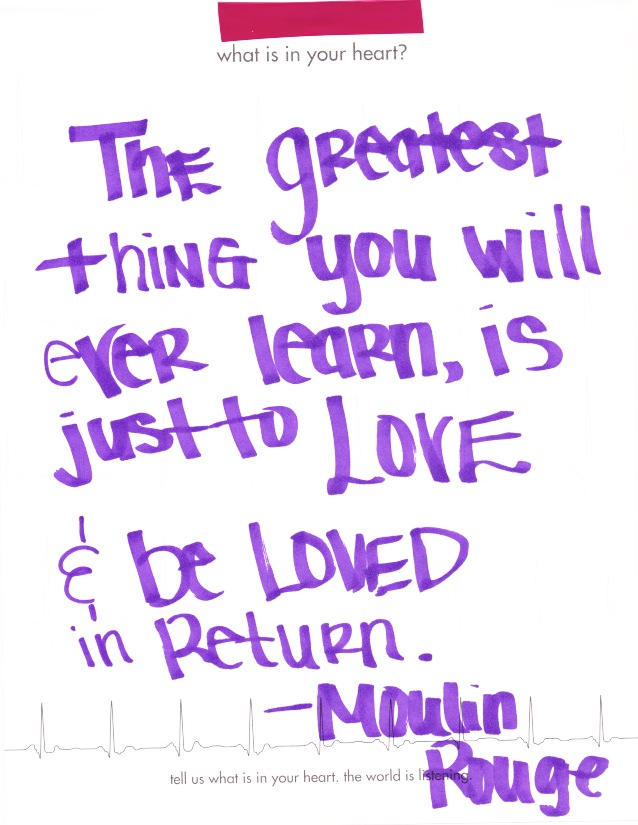 what is in your heart?
The greatest
thing you will
ever learn, is
just to LOVE
& be LOVED
in Return.
—Moulin
Rouge
tell us what is in your heart. the world is listening.